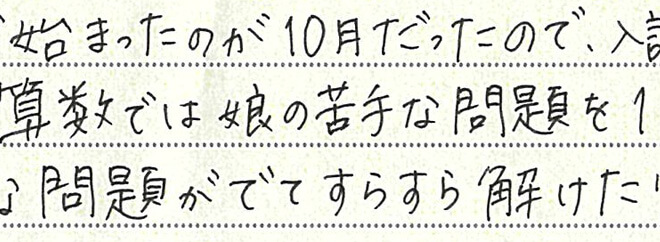 始まったのが10月だったので、入試
算数では娘の苦手な問題を1
な問題がでてすらすら解けた